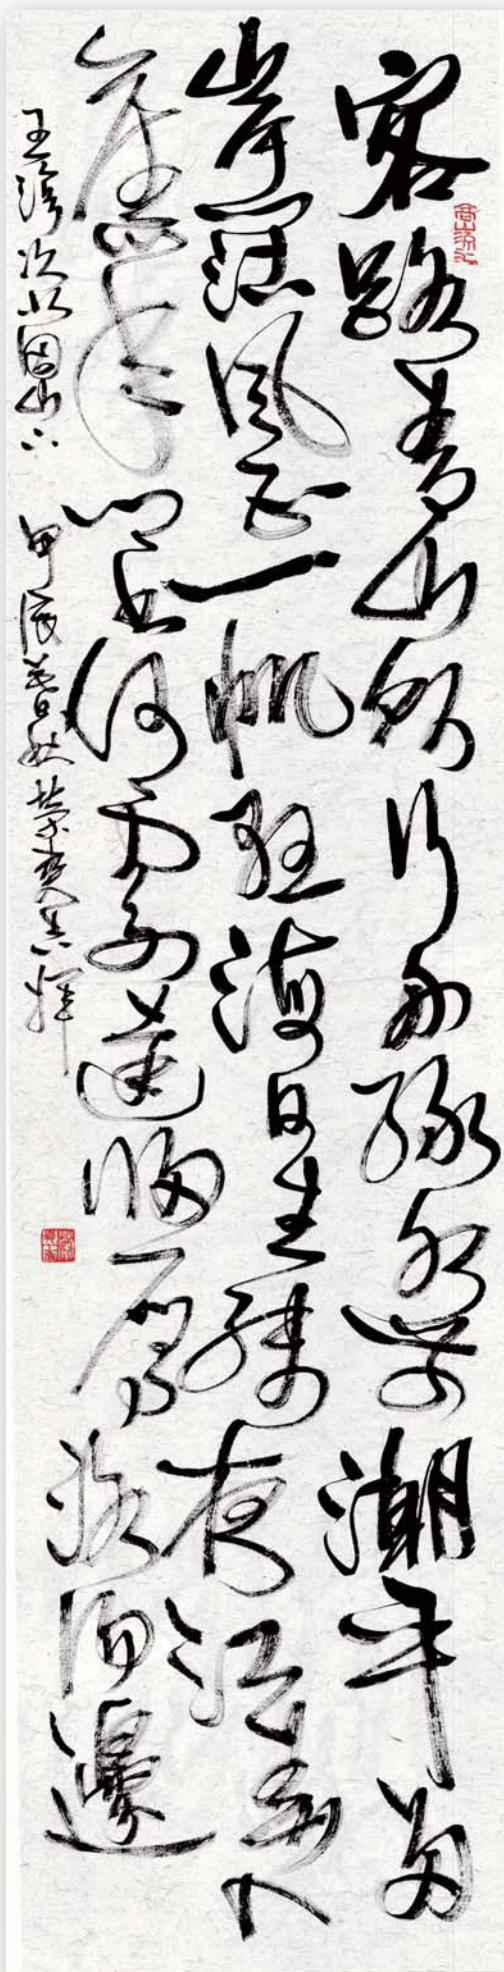 客路青山外行舟綠水前潮平兩
岸闊風正一帆懸海日生殘夜江春入
舊年鄉書何處達歸雁洛陽邊
王灣次北固山下 甲辰暮秋
高山流水